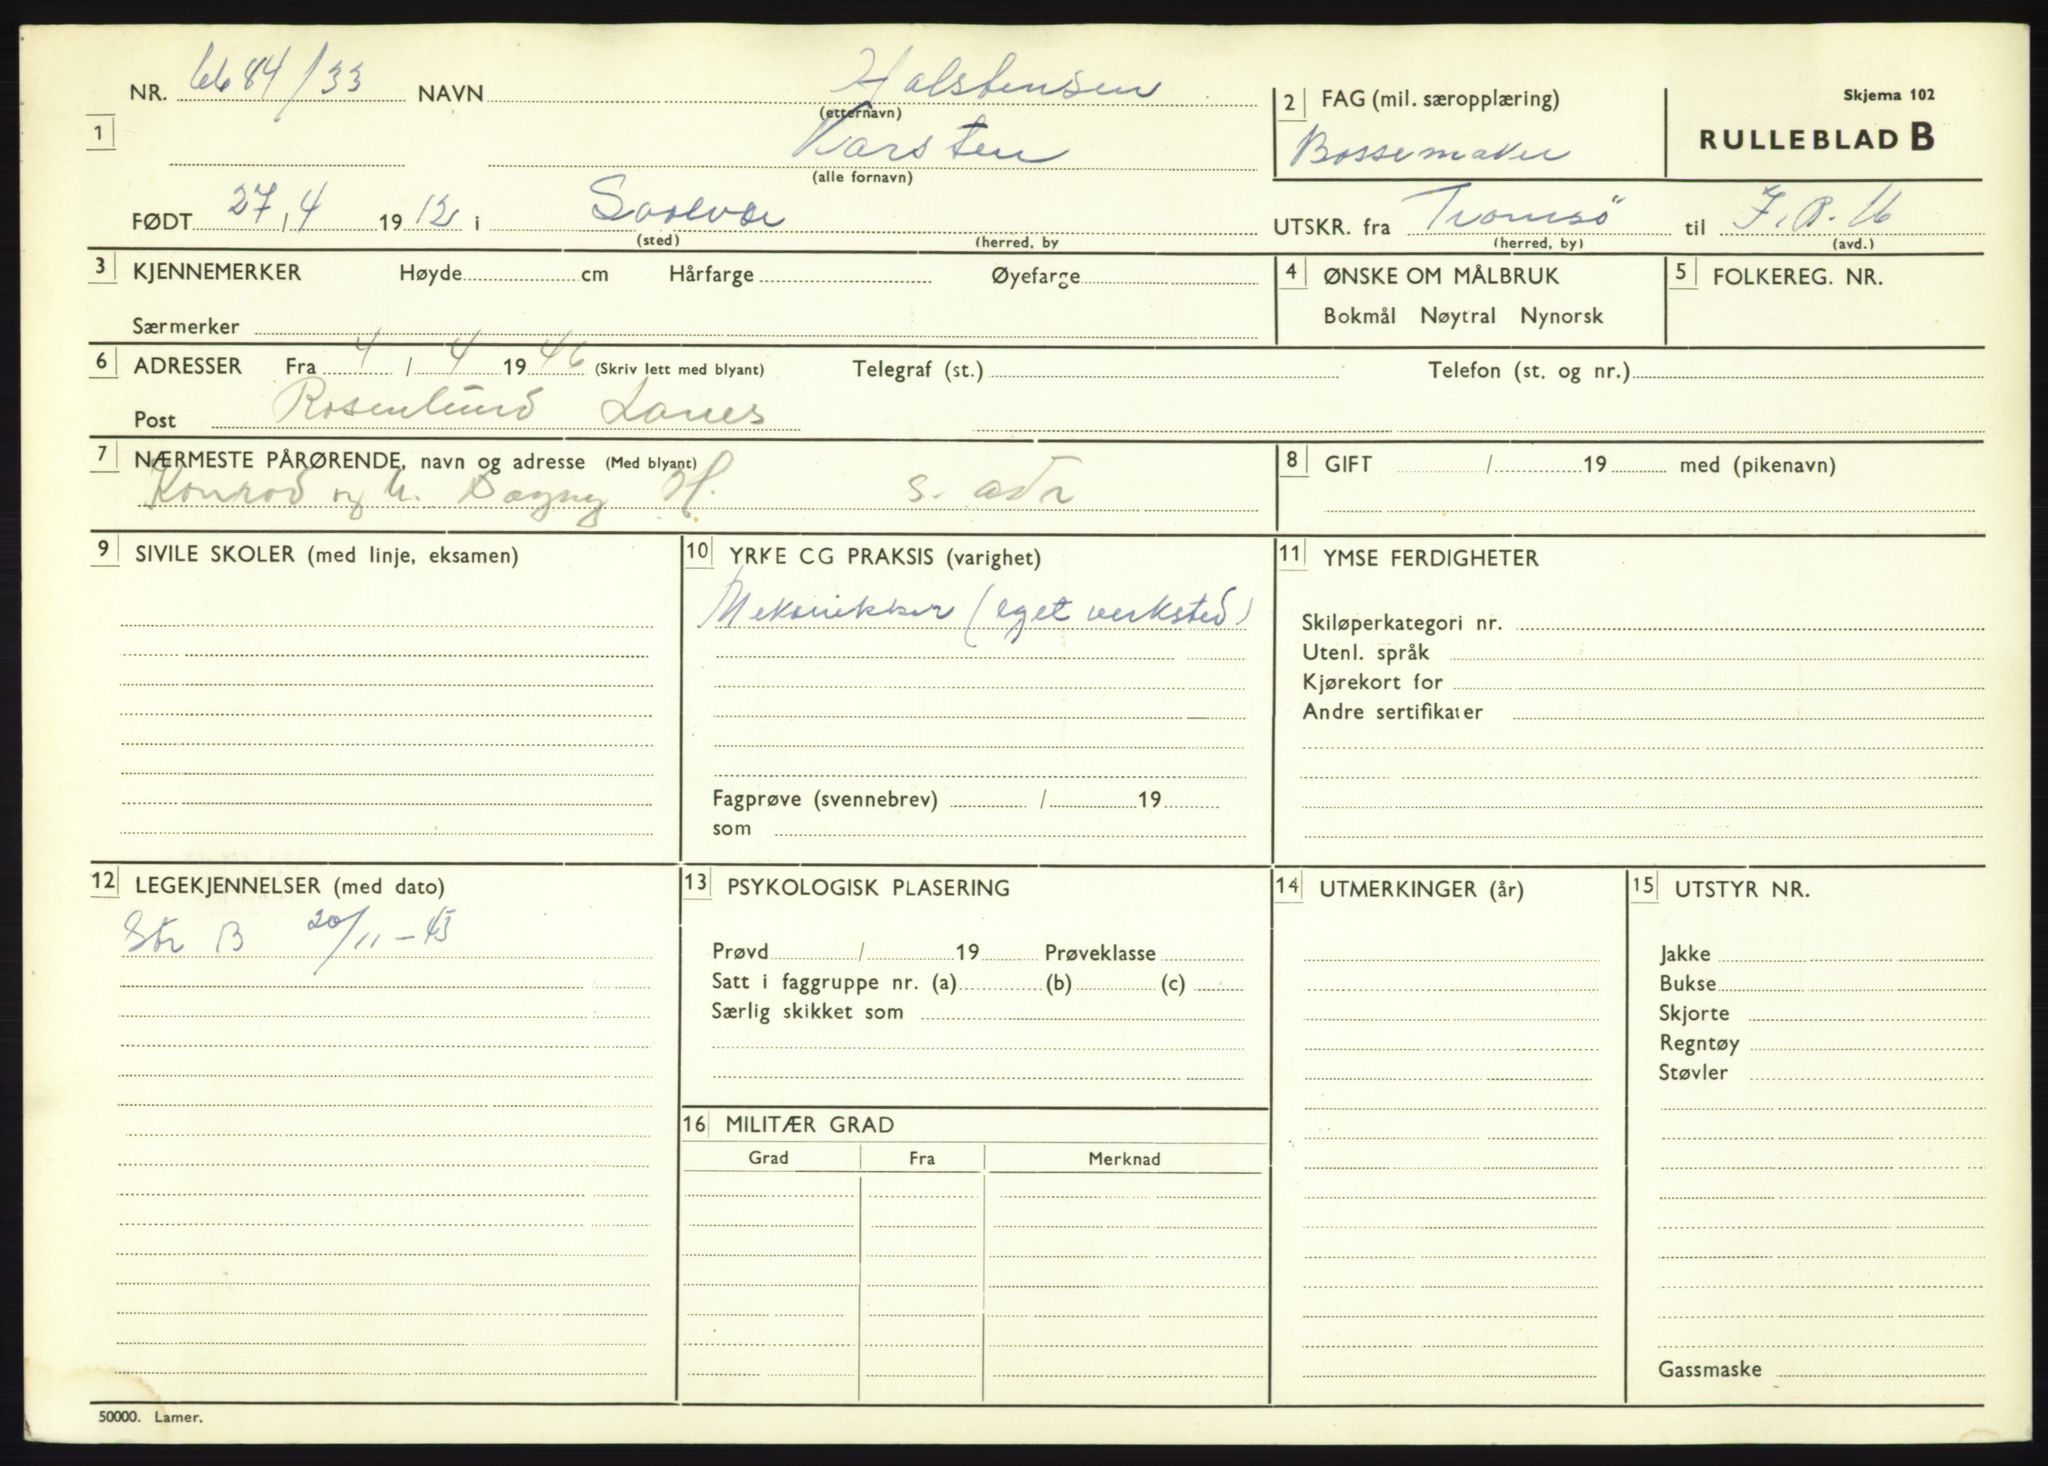 NR. 6684/33 NAVN Halstensen
(etternavn)
1
Karsten
(alle fornavn)
FØDT 27/4 1912 i
(sted) (herred, by
2 FAG (mil. særopplæring)
Bossemaker
Skjema 102
RULLEBLAD B
UTSKR. fra Tromsö til I.R. 16
(herred, by) (avd.)
3 KJENNEMERKER Høyde cm Hårfarge Øyefarge
Særmerker
4 ØNSKE OM MÅLBRUK
Bokmål Nøytral Nynorsk
5 FOLKEREG. NR.
6 ADRESSER Fra 4/4 1946 (Skriv lett med blyant) Telegraf (st.) Telefon (st. og nr.)
Post Rosenlund Lanes
7 NÆRMESTE PÅRØRENDE, navn og adresse (Med blyant)
Konrad og h. Dagny H. s. adr
8 GIFT / 19 med (pikenavn)
9 SIVILE SKOLER (med linje, eksamen)
10 YRKE CG PRAKSIS (varighet)
Mekanikker (eget verksted)
Fagprøve (svennebrev) / 19
som
11 YMSE FERDIGHETER
Skiløperkategori nr.
Utenl. språk
Kjørekort for
Andre sertifikater
12 LEGEKJENNELSER (med dato)
Str B 20/11-45
13 PSYKOLOGISK PLASERING
Prøvd / 19 Prøveklasse
Satt i faggruppe nr. (a) (b) (c)
Særlig skikket som
16 MILITÆR GRAD
Grad Fra Merknad
14 UTMERKINGER (år)
15 UTSTYR NR.
Jakke
Bukse
Skjorte
Regntøy
Støvler
Gassmaske
50000. Lamer.